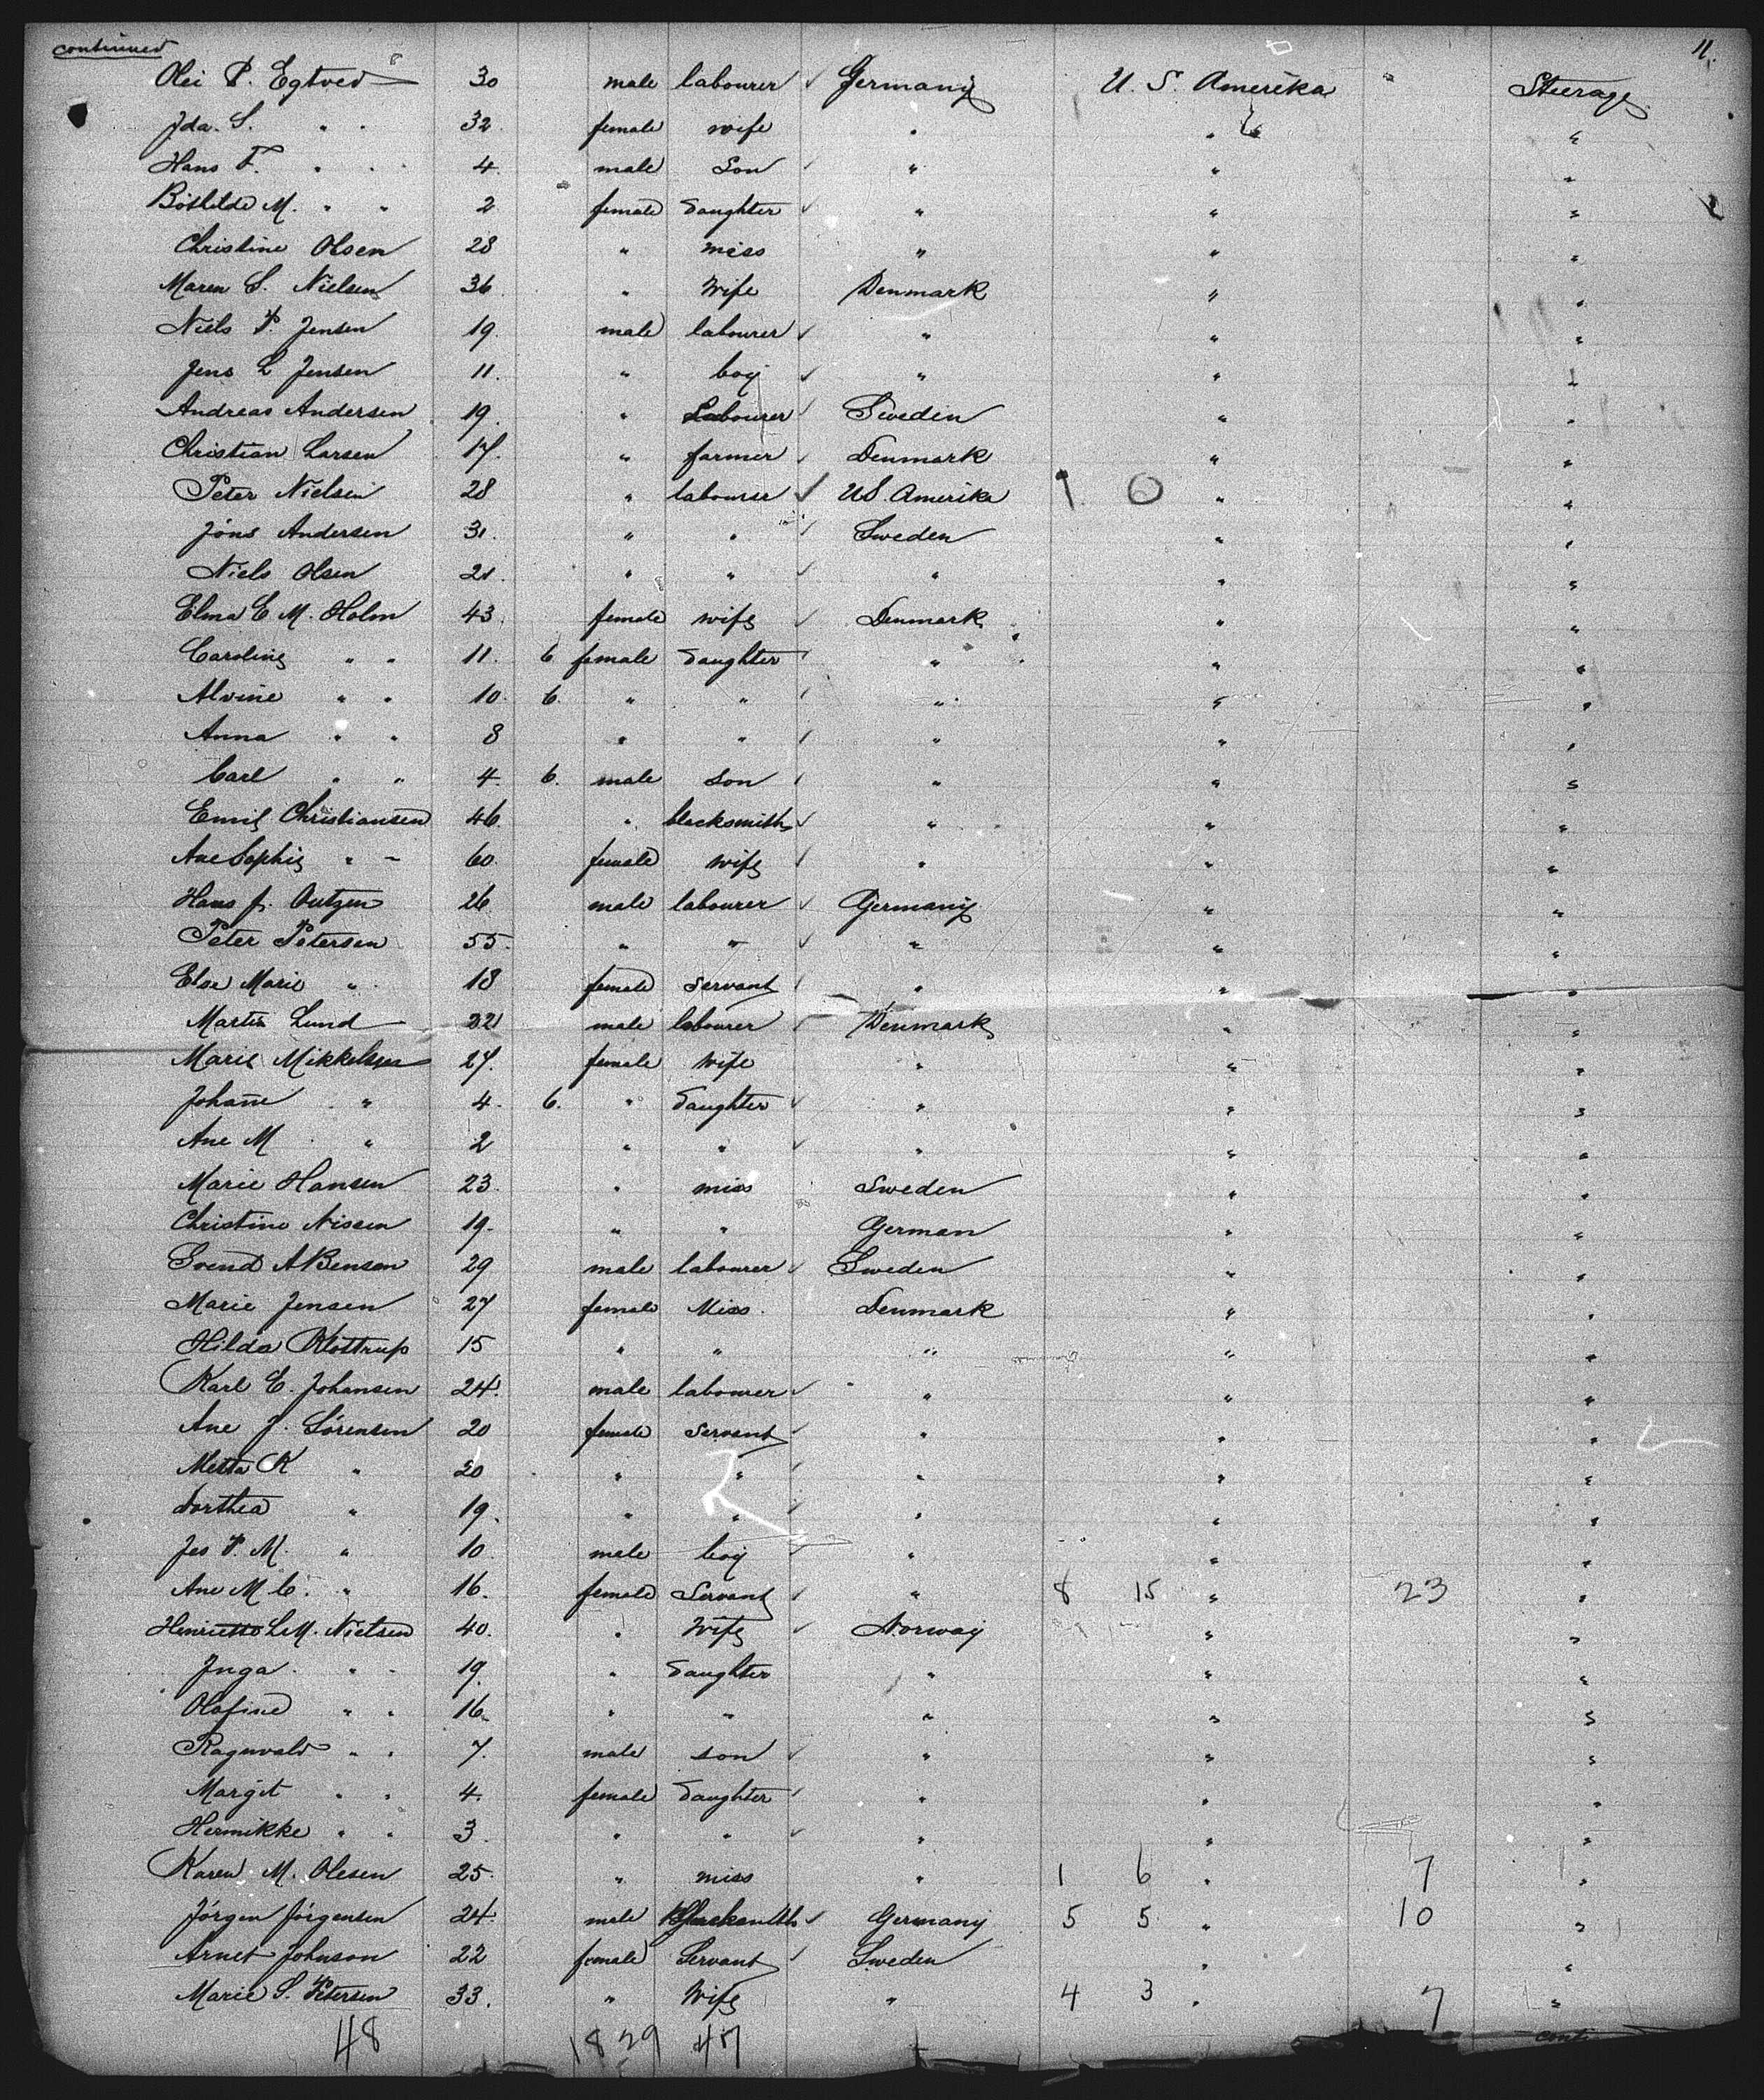 continued 11.
Olei P. Egtved 30 male labourer ✓ Germany U. S. Amerika Steerage
Ida. S. " " 32. female wife " " "
Hans F. " " 4. male Son ✓ " " "
Bothilde M. " " 2 female Daughter ✓ " " "
Christine Olsen 28 " miss " " "
Maren S. Nielsen 36. " Wife Denmark " "
Niels P. Jensen 19. male labourer ✓ " " "
Jens L Jensen 11. " boy ✓ " " "
Andreas Andersen 19. " Labourer ✓ Sweden " "
Christian Larsen 17. " farmer ✓ Denmark " "
Peter Nielsen 28 " labourer ✓ U.S. Amerika 1 0 " "
Jöns Andersen 31. " " ✓ Sweden " "
Niels Olsen 21. " " ✓ " " "
Elma E. M. Holm 43. female wife ✓ Denmark " "
Caroline " " 11. 6 female Daughter ✓ " " "
Alvine " " 10. 6. " " ✓ " " "
Anna " " 8 " " ✓ " " "
Carl " " 4. 6. male Son ✓ " " "
Emil Christiansen 46. " blacksmith ✓ " " "
Ane Sophie " " 60. female wife ✓ " " "
Hans J. Outzen 26 male labourer ✓ Germany " "
Peter Petersen 55. " " ✓ " " "
Else Marie " 18 female Servant ✓ " " "
Martin Lund 32 male labourer ✓ Denmark " "
Marie Mikkelsen 27. female wife " " "
Johanne " 4. 6. " Daughter ✓ " " "
Ane M " 2 " " ✓ " " "
Marie Hansen 23. " miss Sweden " "
Christine Nissen 19. " " German " "
Svend A Benson 29 male labourer ✓ Sweden " "
Marie Jensen 27 female Miss. Denmark " "
Hilda Klottrup 15 " " " " "
Karl E. Johansen 24. male labourer ✓ " " "
Ane J. Sörensen 20 female Servant ✓ " " "
Metta K " 20 " " ✓ " " "
Dorthea " 19. " " ✓ " " "
Jes P. M. " 10. male boy ✓ " " "
Ane M C. " 16. female Servant ✓ " 8 15 " 23 "
Henriette L.M. Nielsen 40. " Wife ✓ Norway " "
Inga " " 19. " Daughter " " "
Olafine " " 16. " " " " "
Ragnvald " " 7. male son ✓ " " "
Margit " " 4. female Daughter ✓ " " "
Hermikke " " 3. " " ✓ " " "
Karen M. Olesen 25. " miss " 1 6 " 7 "
Jörgen Jörgensen 24. male ✓ Germany 5 5 " 10 "
Arnet Johnson 22 female Servant ✓ Sweden " "
Marie S. Petersen 33. " Wife " 4 3 " 7 "
48 18 29 47 conti